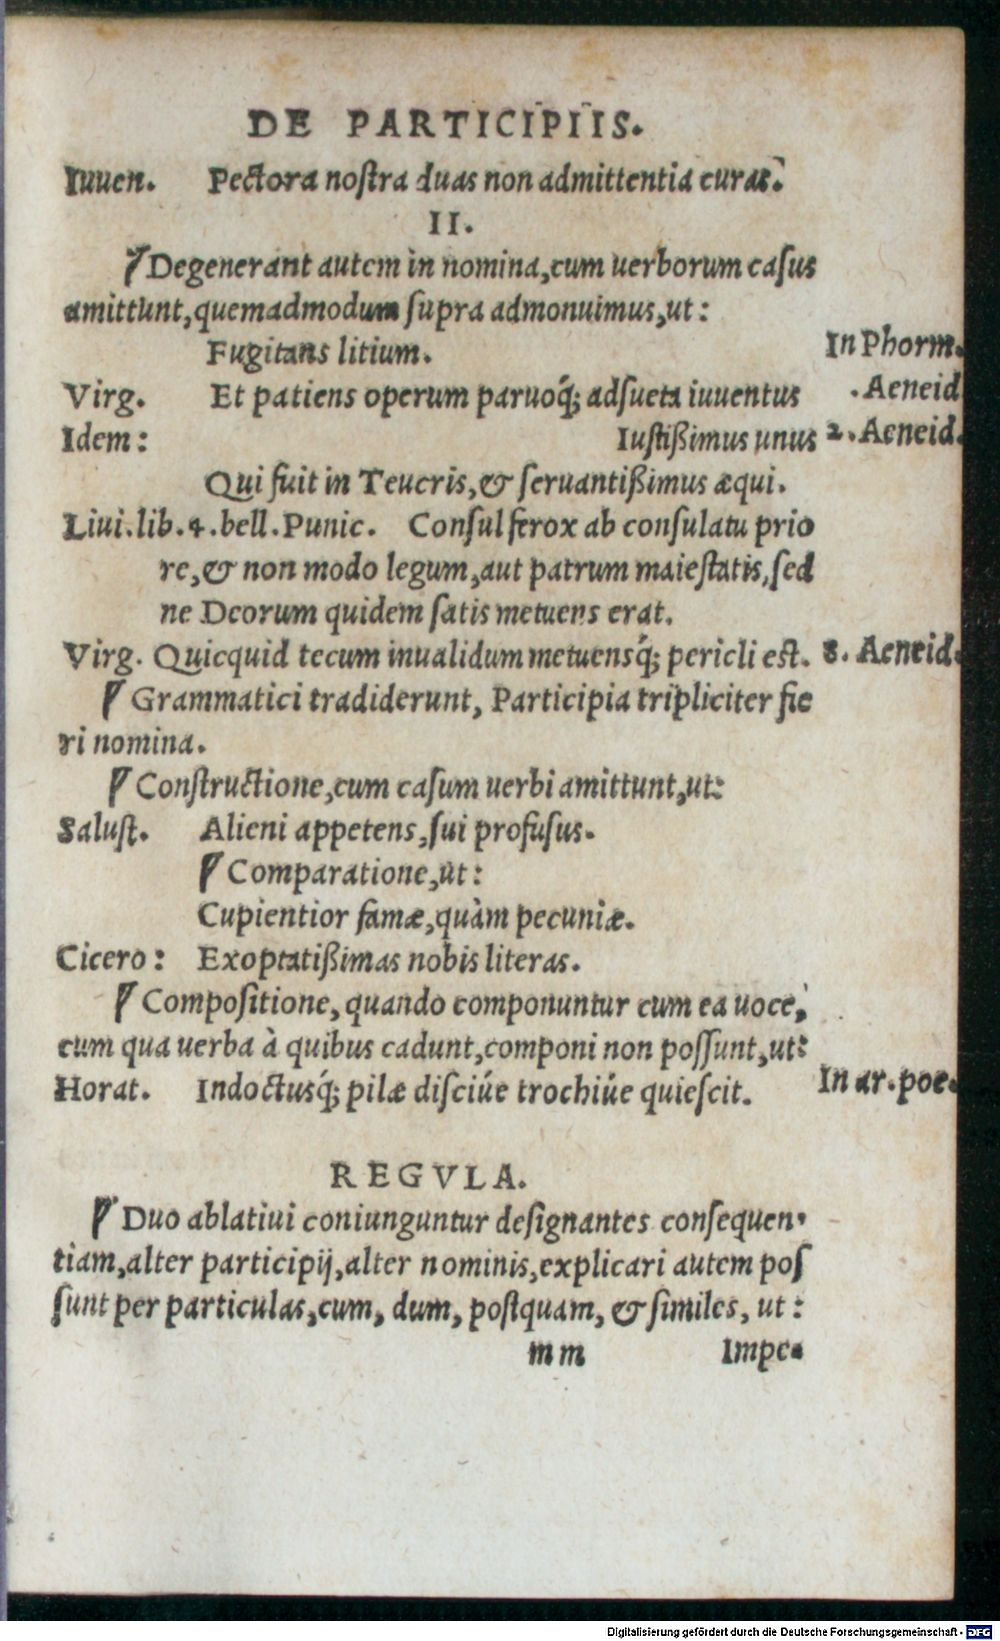 DE PARTICIPIIS.
Iuuen. Pectora noſtra duas non admittentia curas.
II.
Degenerant autem in nomina, cum uerborum caſus
amittunt, quemadmodum ſupra admonuimus, ut:
Fugitans litium. In Phorm.
Virg. Et patiens operum paruoq́; adſueta iuuentus . Aeneid
Idem: Iuſtißimus unus 2. Aeneid.
Qui fuit in Teucris, & ſeruantißimus æqui.
Liui. lib. 4. bell. Punic. Conſul ferox ab conſulatu prio
re, & non modo legum, aut patrum maieſtatis, ſed
ne Deorum quidem ſatis metuens erat.
Virg. Quicquid tecum inualidum metuensq́; pericli est. 8. Aeneid.
Grammatici tradiderunt, Participia tripliciter fie
ri nomina.
Conſtructione, cum caſum uerbi amittunt, ut:
Saluſt. Alieni appetens, ſui profuſus.
Comparatione, ut:
Cupientior famæ, quàm pecuniæ.
Cicero: Exoptatißimas nobis literas.
Compoſitione, quando componuntur cum ea uoce,
cum qua uerba à quibus cadunt, componi non poſſunt, ut:
Horat. Indoctusq́; pilæ diſciúe trochiúe quieſcit. In ar. poe.
REGVLA.
Duo ablatiui coniunguntur deſignantes conſequen-
tiam, alter participij, alter nominis, explicari autem poſ
ſunt per particulas, cum, dum, poſtquam, & ſimiles, ut:
mm Impe-
Digitalisierung gefördert durch die Deutsche Forschungsgemeinschaft - DFG